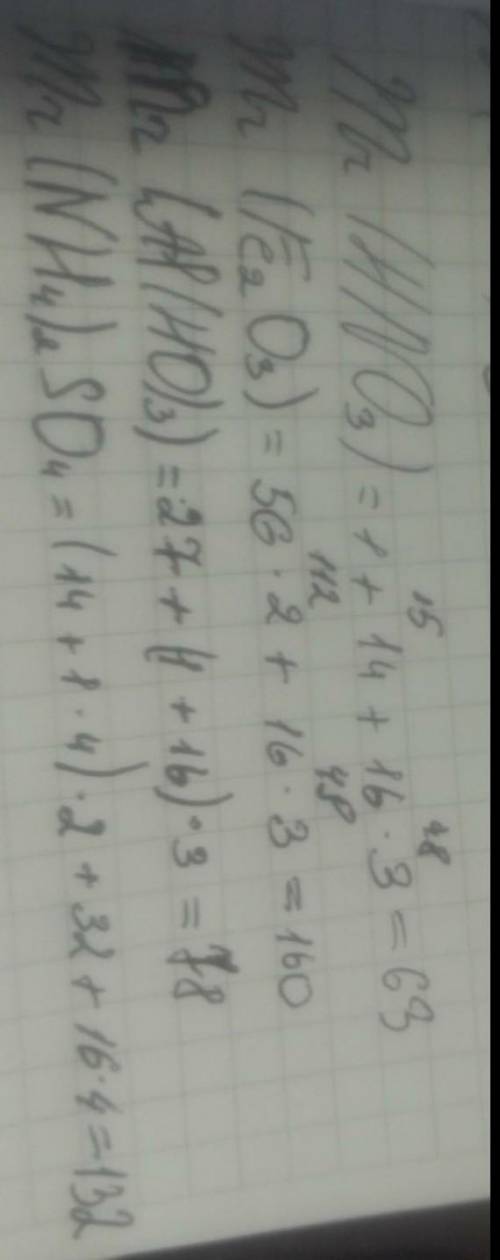 Mr (HNO3) = 1 + 14 + 16 · 3 = 63
15 48
Mr (Fe2O3) = 56 · 2 + 16 · 3 = 160
112 48
Mr (Al(HO)3) = 27 + (1 + 16) · 3 = 78
Mr (NH4)2SO4 = (14 + 1 · 4) · 2 + 32 + 16 · 4 = 132